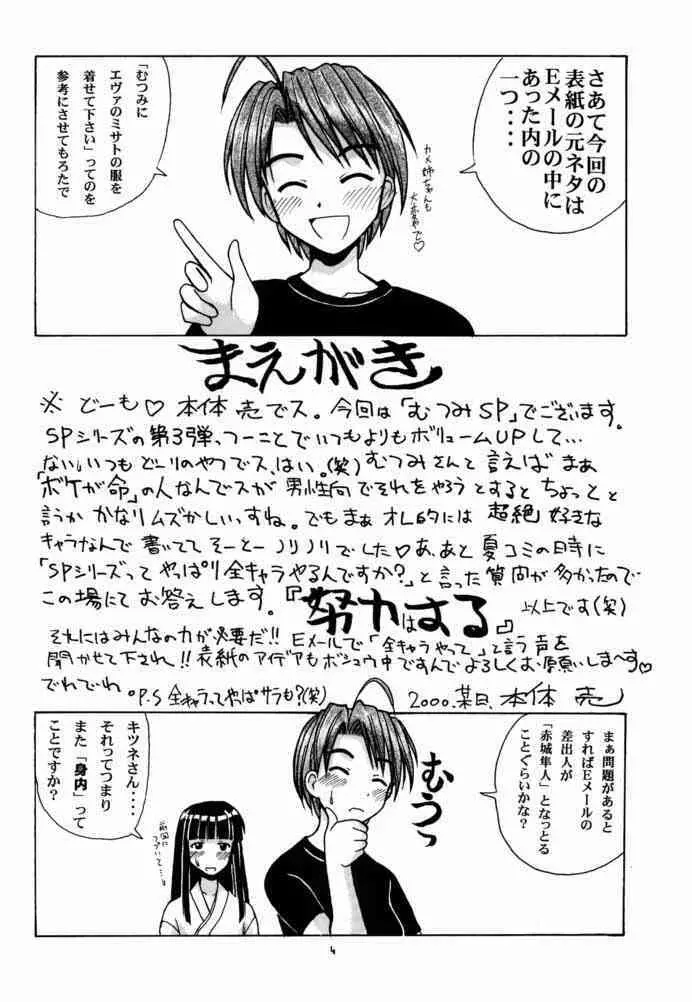 さあて今回の
表紙の元ネタは
Eメールの中に
あった内の
一つ・・・
カメ姉ちゃんも
大変やで♡
「むつみに
エヴァのミサトの服を
着せて下さい」ってのを
参考にさせてもろたで
まえがき
※ どーも♡ 本体 売でス。今回は「むつみSP」でございます。
SPシリーズの第3弾、つーことでいつもよりもボリュームUPして…
ない。いつもどーりのやつでス、はい。(笑) むつみさんと言えば まあ
「ボケが命」の人なんでスが 男性向でそれをやろうとすると ちょっと と
言うか かなりムズかしいっすね。でもまぁ オレ的には 超絶 好きな
キャラなんで 書いてて そーとー ノリノリでした♡ あ、あと 夏コミの時に
「SPシリーズって やっぱり全キャラやるんですか?」と言った質問が多かったので
この場にて お答えします。『努力はする』 以上です(笑)
それにはみんなの力が必要だ!! Eメールで「全キャラやって」と言う声を
聞かせて下され!! 表紙のアイデアもボシュウ中ですんでよろしくお願いしま〜す♡
でれでれ。P.S 全キャラってやっぱサラも?(笑) 2000.某日、本体 売
まぁ問題があると
すればEメールの
差出人が
「赤城隼人」となっとる
ことぐらいかな?
むうっ
キツネさん・・・・
それってつまり
また「身内」って
ことですか?
前回に
つづいて…
4